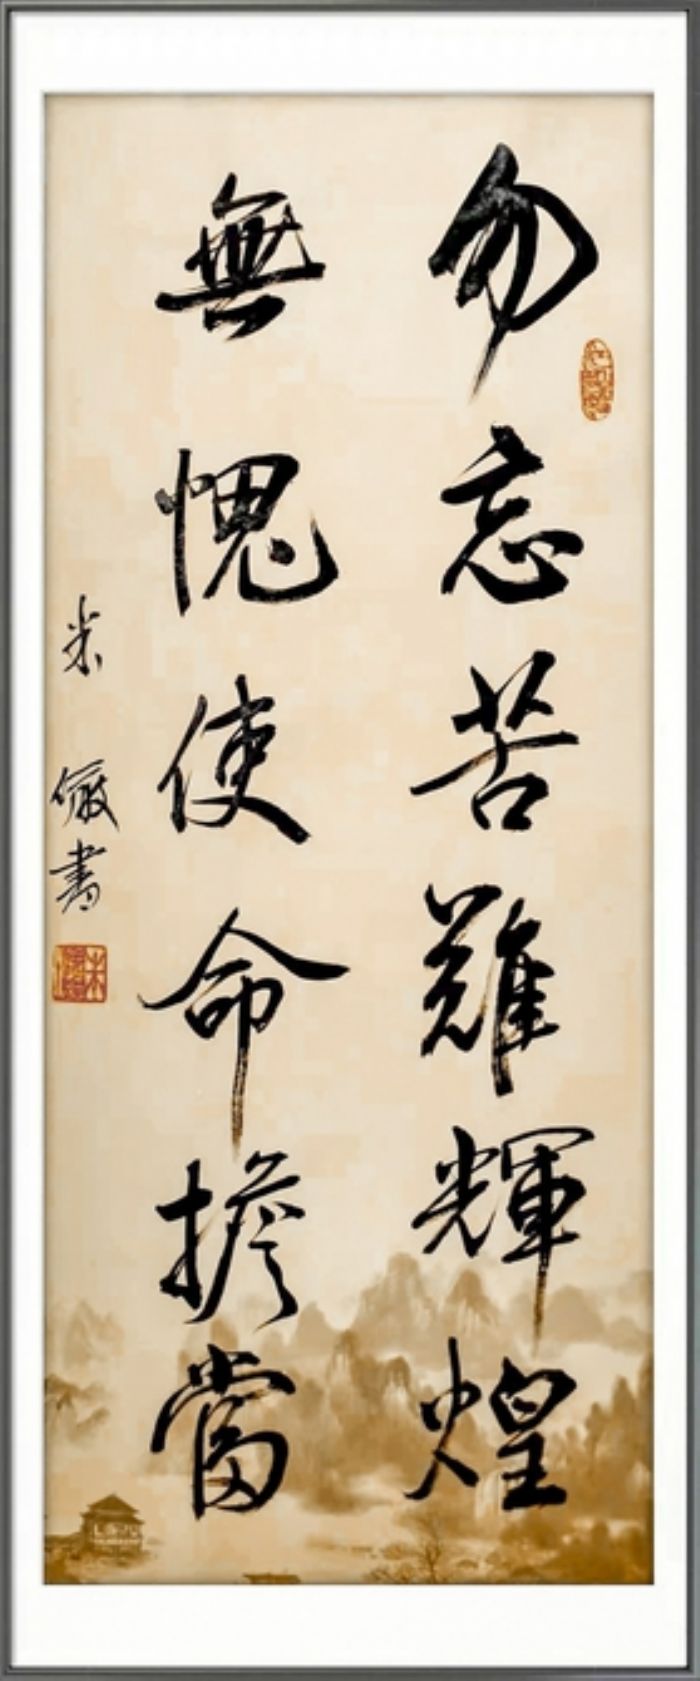 勿忘苦難輝煌
無愧使命擔當
米儆書